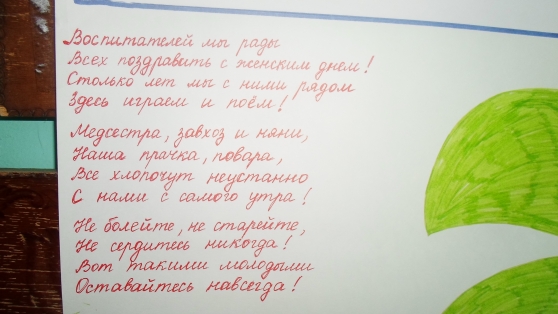 Воспитателей мы рады
Всех поздравить с женским днем!
Столько лет мы с ними рядом
Здесь играем и поём!
Медсестра, завхоз и няни,
Наша прачка, повара,
Все хлопочут неустанно
С нами с самого утра!
Не болейте, не старейте,
Не сердитесь никогда!
Вот такими молодыми
Оставайтесь навсегда!